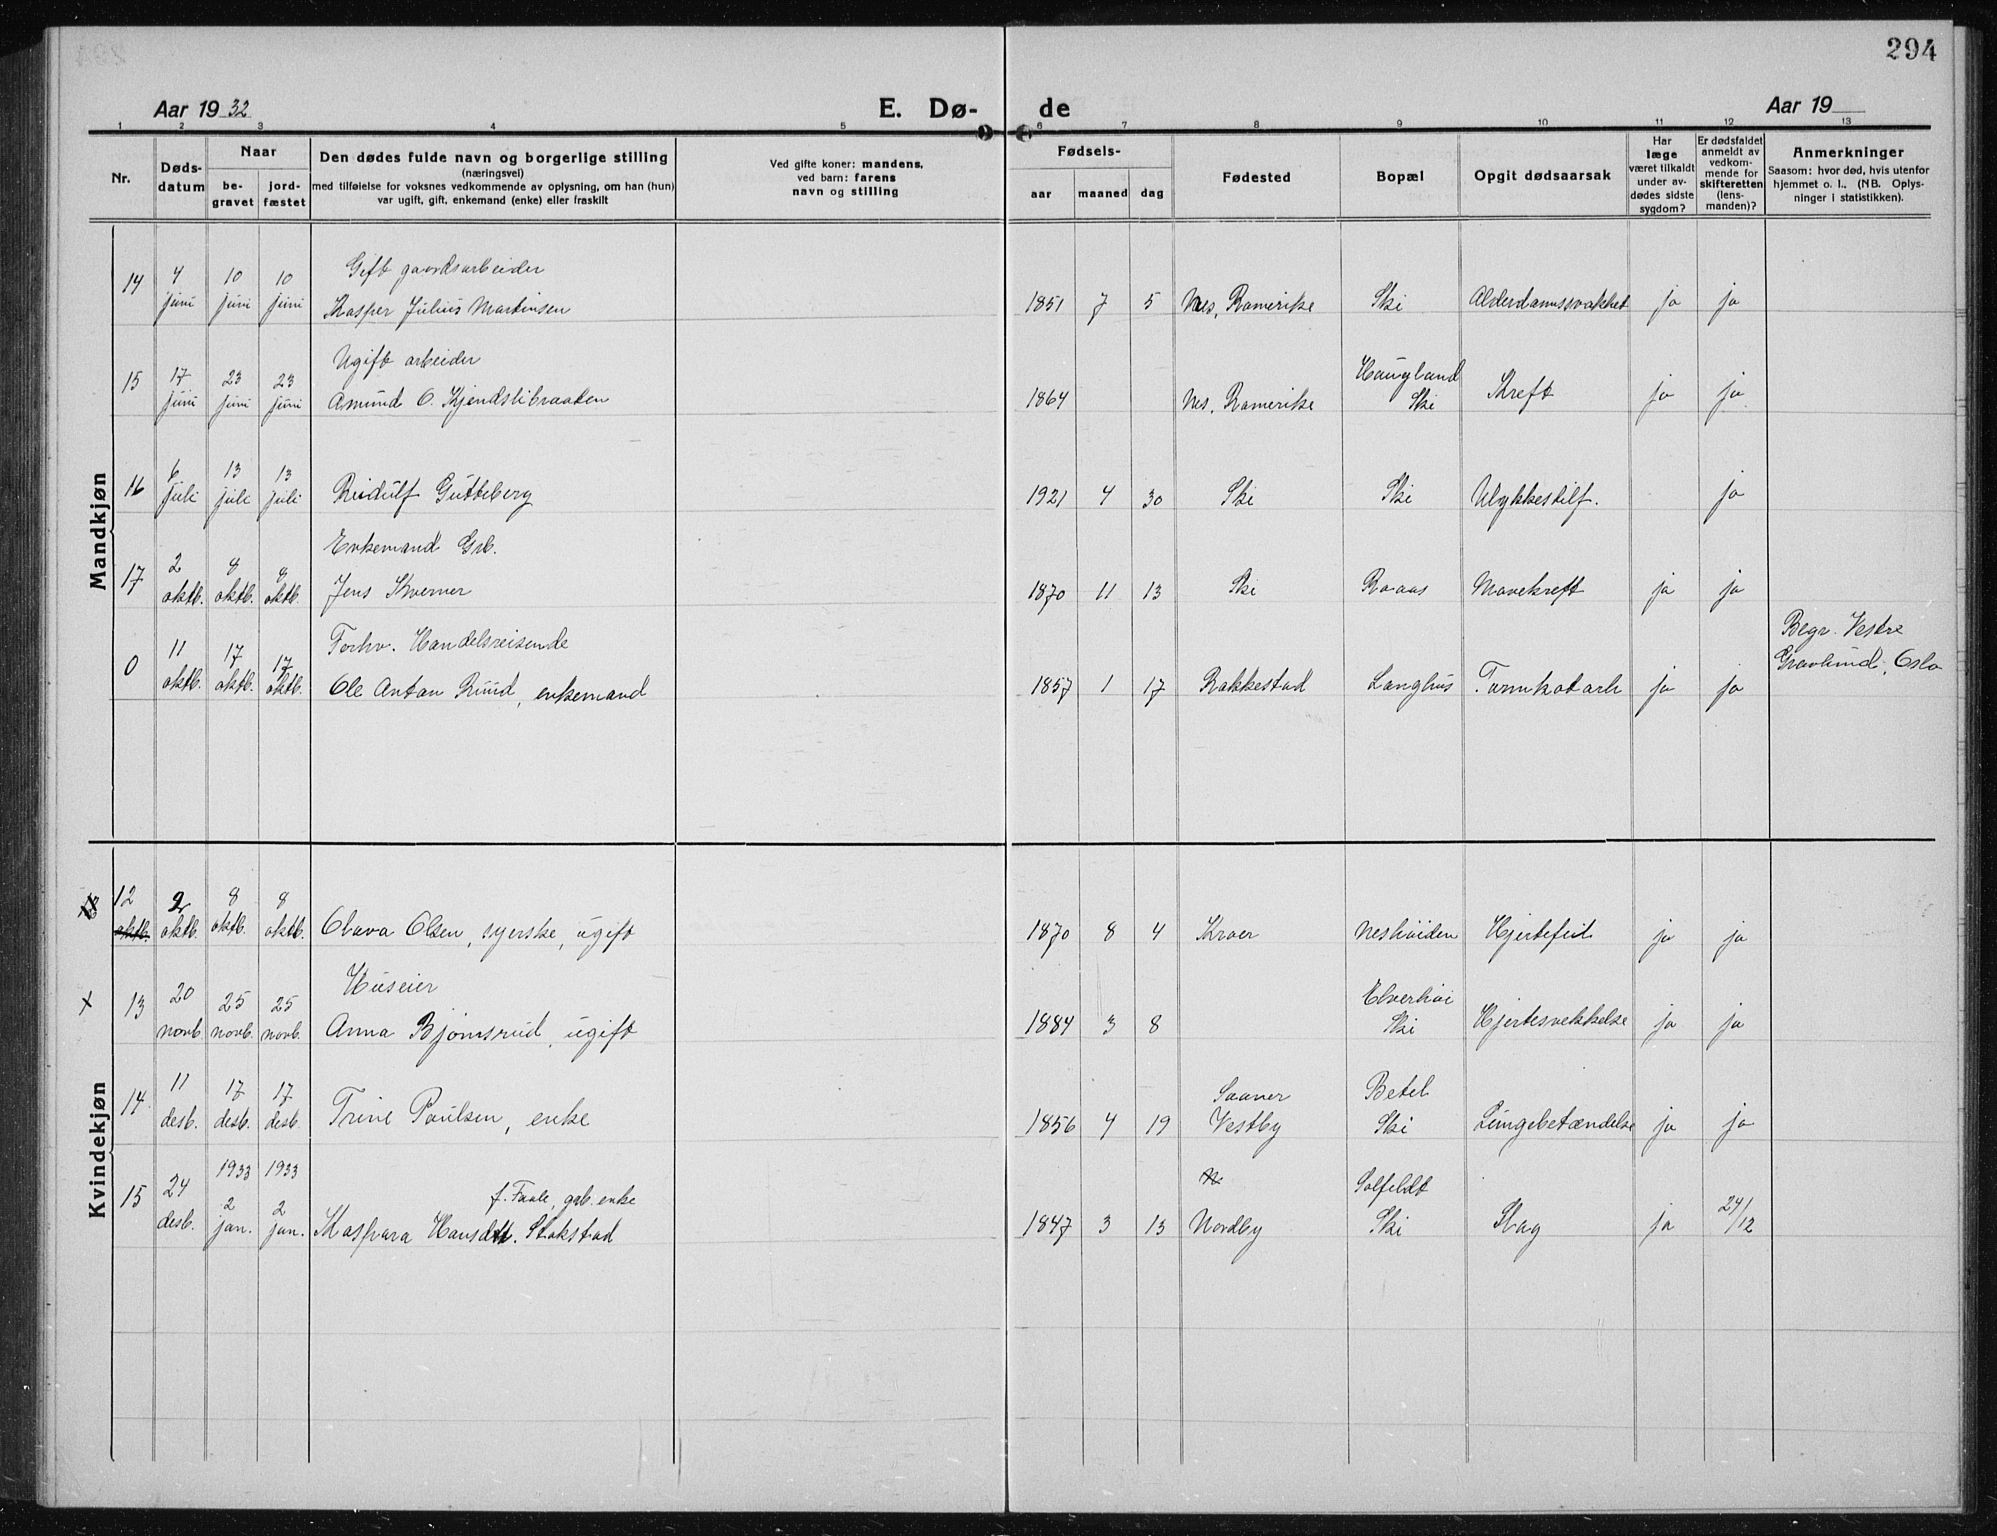 294
Aar 1932
E. Dø-
de
Aar 19
1 2 3 4 5 6 7 8 9 10 11 12 13
Nr.
Døds-
datum
Naar
be-
gravet
jord-
fæstet
Den dødes fulde navn og borgerlige stilling
(næringsvei)
med tilføielse for voksnes vedkommende av oplysning, om han (hun)
var ugift, gift, enkemand (enke) eller fraskilt
Ved gifte koner: mandens,
ved barn: farens
navn og stilling
Fødsels-
aar maaned dag
Fødested
Bopæl
Opgit dødsaarsak
Har
læge
været tilkaldt
under av-
dødes sidste
sygdom?
Er dødsfaldet
anmeldt av
vedkom-
mende for
skifteretten
(lens-
manden)?
Anmerkninger
Saasom: hvor død, hvis utenfor
hjemmet o. l., (NB. Oplys-
ninger i statistikken).
Mandkjøn
14 4 juni 10 juni 10 juni Gift gaardsarbeider
Kasper Julius Martinsen 1851 7 5 Nes, Romerike Ski Alderdomssvakhet ja ja
15 17 juni 23 juni 23 juni Ugift arbeider
Amund O. Kjendslibraaten 1864 Nes, Romerike Haugland
Ski Kreft ja ja
16 6 juli 13 juli 13 juli Ruidulf Gutteberg 1921 4 30 Ski Ski Ulykkestilf. ja
17 2 oktb. 8 oktb. 8 oktb. Enkemand Grb.
Jens Kverner 1870 11 13 Ski Roaas Mavekreft ja ja
0 11 oktb. 17 oktb. 17 oktb. Forhv. Handelsreisende
Ole Anton Ruud, enkemand 1857 1 17 Rakkestad Langhus Tarmkatarh ja ja
Begr. Vestre
Gravlund, Oslo
Kvindekjøn
12 oktb. 2 oktb. 8 oktb. 8 oktb. Olava Olsen, syerske, ugift 1870 8 4 Kroer Neshöiden Hjertefeil ja ja
x 13 20 novb. 25 novb. 25 novb. Huseier
Anna Bjørnsrud, ugift 1884 3 8 Elverhöi
Ski Hjertesvekkelse ja ja
14 11 desb. 17 desb. 17 desb. Trine Paulsen, enke 1856 4 19 Saaner
Vestby Betel
Ski Lungebetændelse ja ja
15 24 desb. 1933 2 jan. 1933 2 jan. f. Faale, grb. enke
Kaspara Hansdtt. Stokstad 1847 3 13 Nordby Solfeldt
Ski Slag ja 24/12